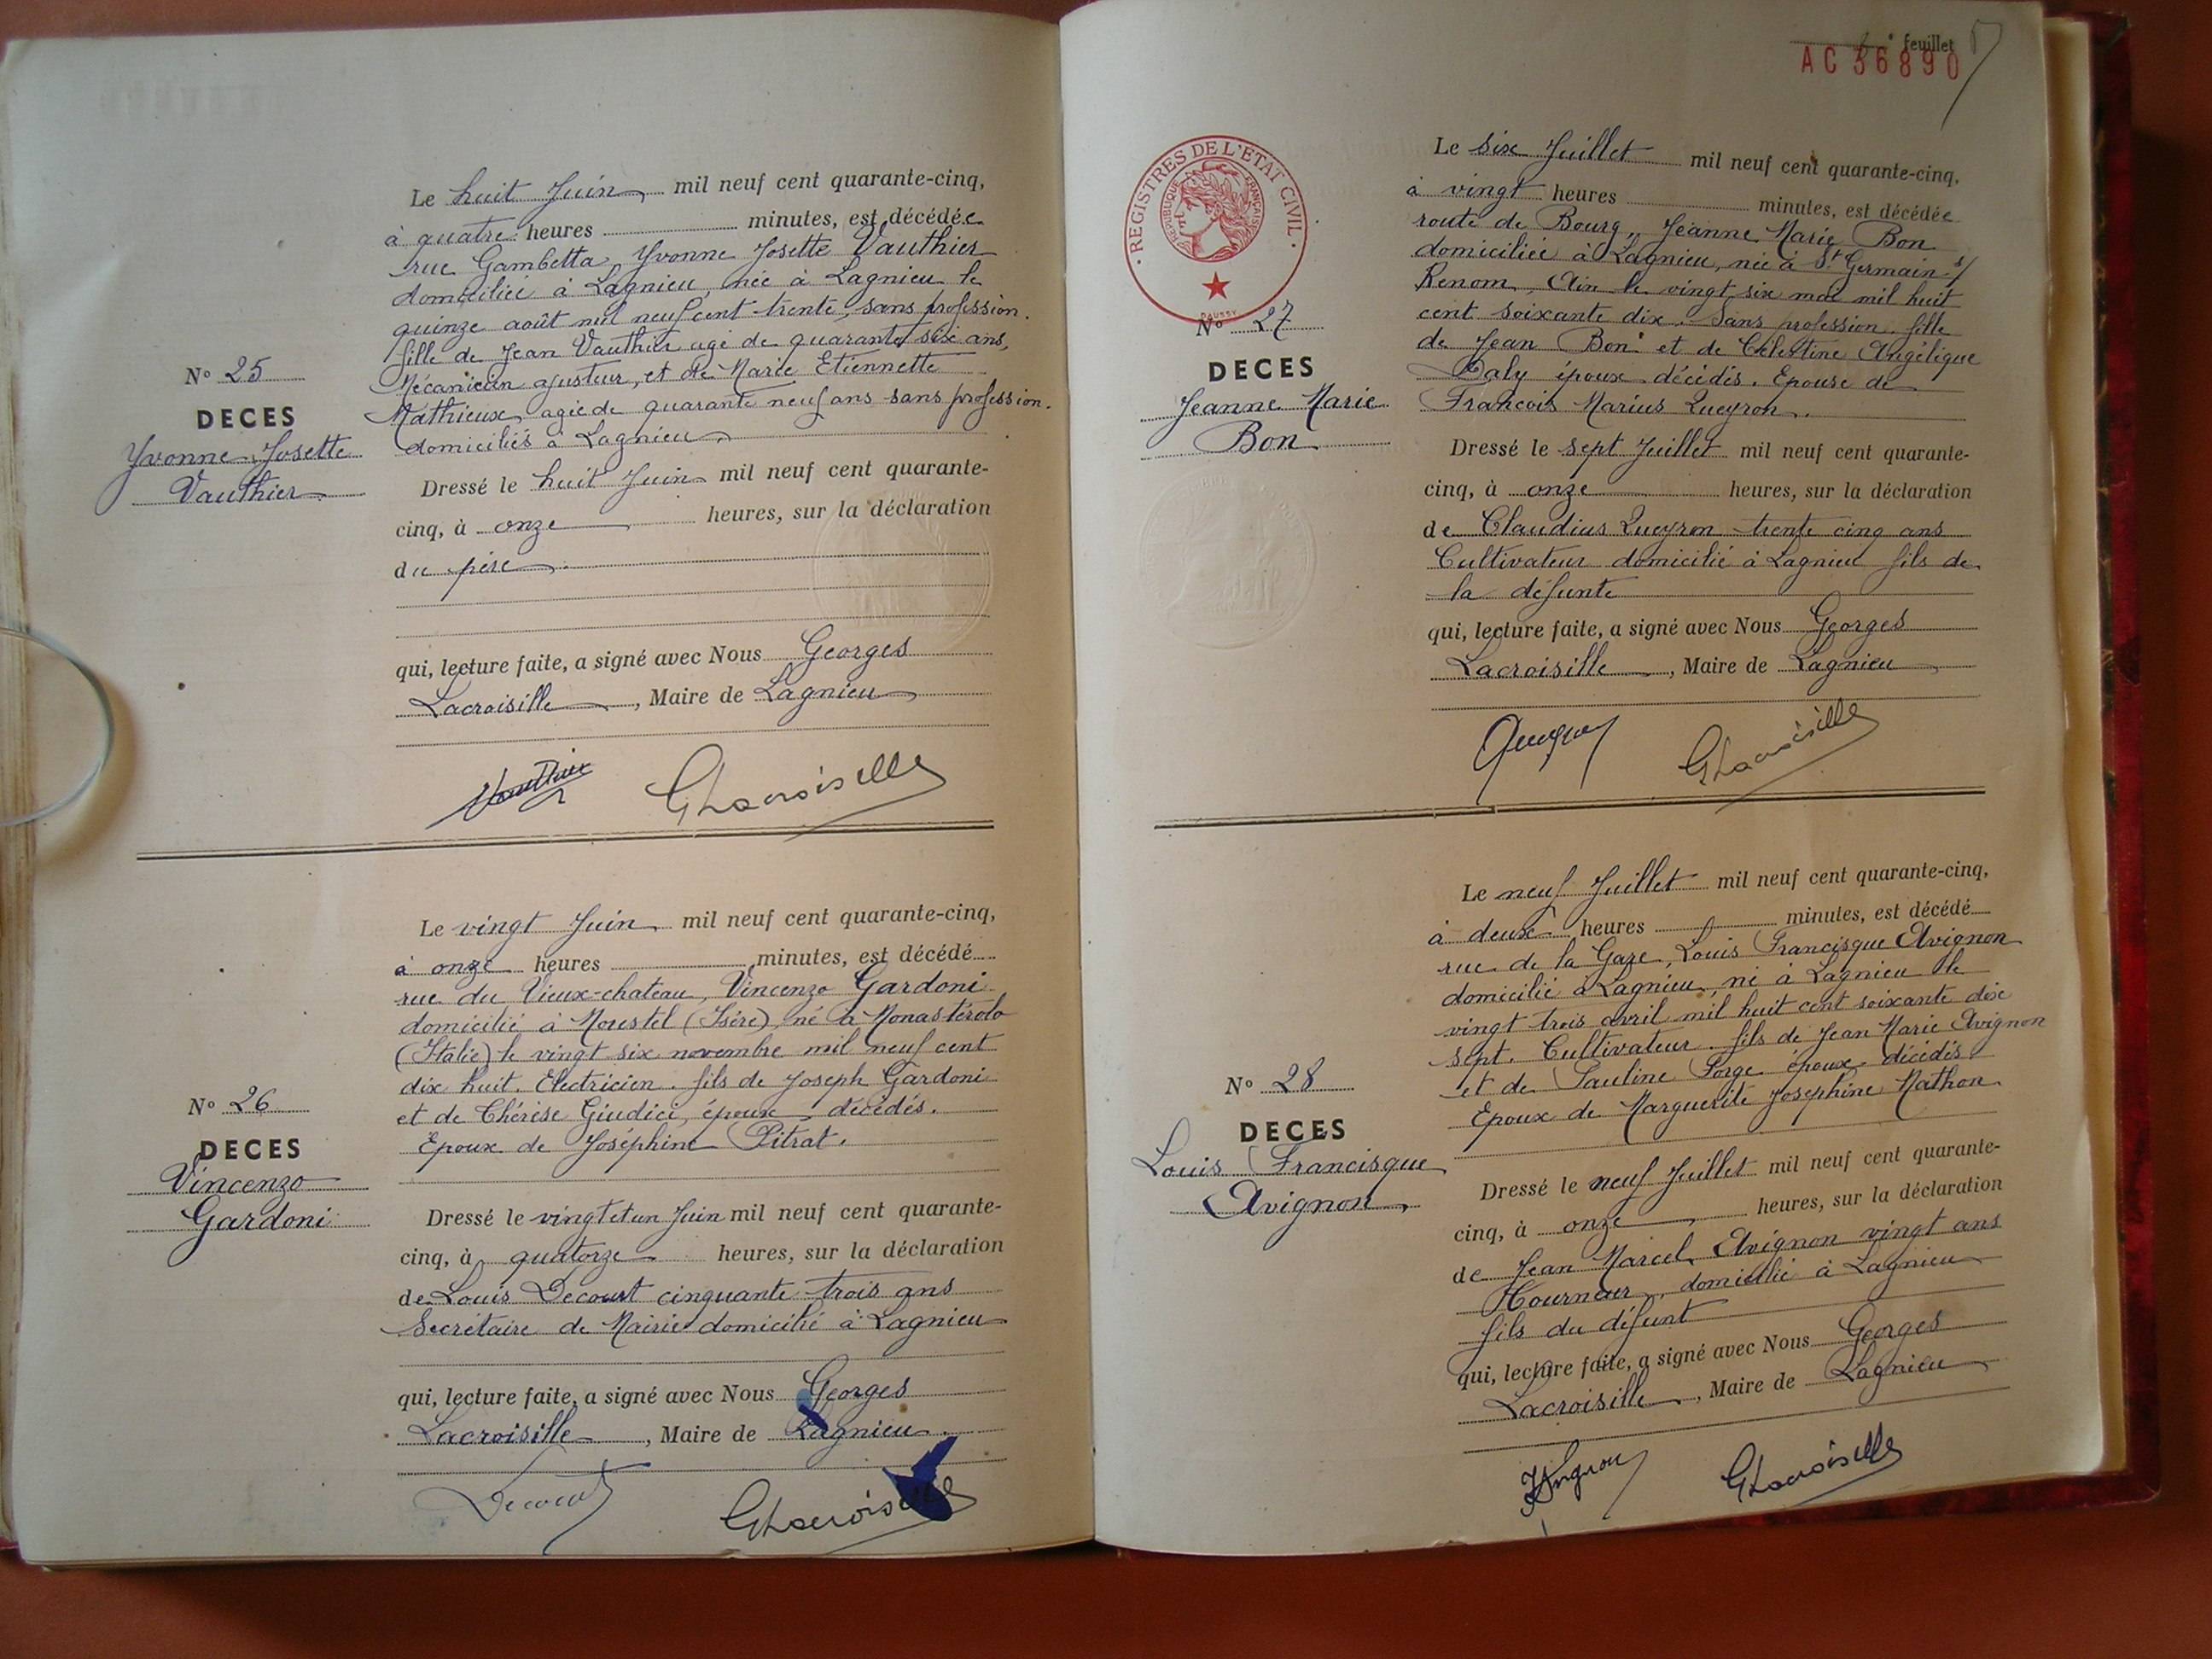 Le huit Juin mil neuf cent quarante-cinq,
à quatre heures minutes, est décédée
rue Gambetta, Yvonne Josette Vauthier
domiciliée à Lagnieu, née à Lagnieu le
quinze août mil neuf cent trente, sans profession.
fille de Jean Vauthier agé de quarante six ans,
Mécanicien ajusteur, et de Marie Etiennette
Mathieux agée de quarante neuf ans sans profession.
domiciliés à Lagnieu.
N° 25
DECES
Yvonne Josette
Vauthier
Dressé le huit Juin mil neuf cent quarante-
cinq, à onze heures, sur la déclaration
du père
qui, lecture faite, a signé avec Nous Georges
Lacroisille, Maire de Lagnieu
Vauthier GLacroisille
Le vingt Juin mil neuf cent quarante-cinq,
à onze heures minutes, est décédé
rue du Vieux-chateau, Vincenzo Gardoni
domicilié à Morestel (Isère), né à Monastérolo
(Italie) le vingt six novembre mil neuf cent
dix huit. Electricien. fils de Joseph Gardoni
et de Thérèse Giudici, époux décédés.
Epoux de Joséphine Pitrat.
N° 26
DECES
Vincenzo
Gardoni
Dressé le vingt et un Juin mil neuf cent quarante-
cinq, à quatorze heures, sur la déclaration
de Louis Decourt cinquante trois ans
Secrétaire de Mairie domicilié à Lagnieu
qui, lecture faite, a signé avec Nous Georges
Lacroisille, Maire de Lagnieu.
Decourt GLacroisille
feuillet
AC 36890
REGISTRES DE L'ETAT CIVIL
REPUBLIQUE FRANÇAISE
Le six Juillet mil neuf cent quarante-cinq,
à vingt heures minutes, est décédée
route de Bourg, Jeanne Marie Bon
domiciliée à Lagnieu, née à St Germain s/
Renom, Ain le vingt six mai mil huit
cent soixante dix. Sans profession. fille
de Jean Bon et de Célestine Angélique
Daly époux décédés. Epouse de
François Marius Queyron.
N° 27
DECES
Jeanne Marie
Bon
Dressé le sept Juillet mil neuf cent quarante-
cinq, à onze heures, sur la déclaration
de Claudius Queyron trente cinq ans
Cultivateur domicilié à Lagnieu fils de
la défunte
qui, lecture faite, a signé avec Nous Georges
Lacroisille, Maire de Lagnieu
Queyron GLacroisille
Le neuf Juillet mil neuf cent quarante-cinq,
à deux heures minutes, est décédé
rue de la Gare, Louis Francisque Avignon
domicilié à Lagnieu, né à Lagnieu le
vingt trois avril mil huit cent soixante dix
sept. Cultivateur. fils de Jean Marie Avignon
et de Pauline Forge époux décédés
Epoux de Marguerite Joséphine Mathon
N° 28
DECES
Louis Francisque
Avignon
Dressé le neuf Juillet mil neuf cent quarante-
cinq, à onze heures, sur la déclaration
de Jean Marcel Avignon vingt ans
Tourneur, domicilié à Lagnieu
fils du défunt
qui, lecture faite, a signé avec Nous Georges
Lacroisille, Maire de Lagnieu
Avignon GLacroisille